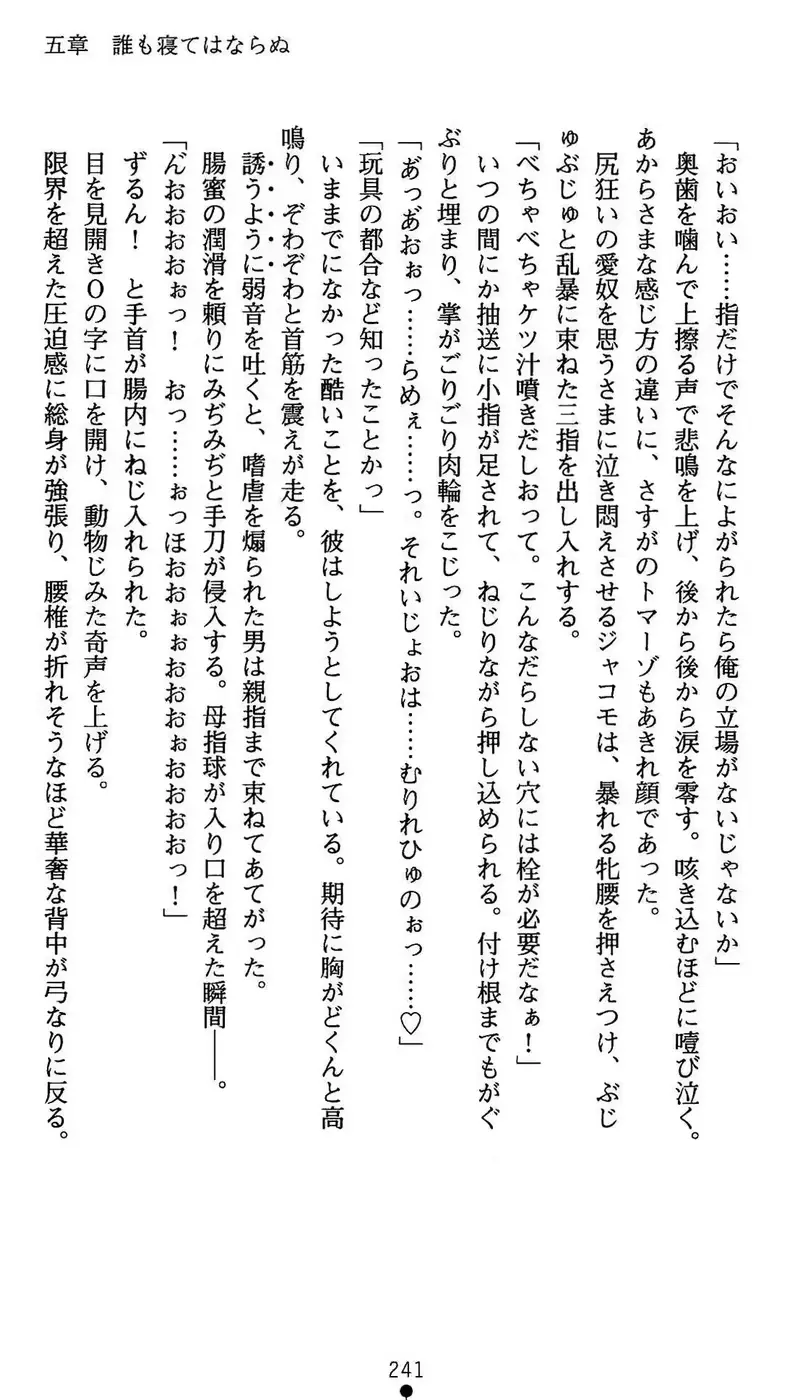 五章　誰も寝てはならぬ
「おいおい……指だけでそんなによがられたら俺の立場がないじゃないか」
　奥歯を噛んで上擦る声で悲鳴を上げ、後から後から涙を零す。咳き込むほどに噎び泣く。
あからさまな感じ方の違いに、さすがのトマーゾもあきれ顔であった。
　尻狂いの愛奴を思うさまに泣き悶えさせるジャコモは、暴れる牝腰を押さえつけ、ぶじ
ゅぶじゅと乱暴に束ねた三指を出し入れする。
「べちゃべちゃケツ汁噴きだしおって。こんなだらしない穴には栓が必要だなぁ！」
　いつの間にか抽送に小指が足されて、ねじりながら押し込められる。付け根までもがぐ
ぶりと埋まり、掌がごりごり肉輪をこじった。
「あ゛っあ゛おぉっ……らめぇ……っ。それいじょおは……むりれひゅのぉっ……♡」
「玩具の都合など知ったことかっ」
　いままでになかった酷いことを、彼はしようとしてくれている。期待に胸がどくんと高
鳴り、ぞわぞわと首筋を震えが走る。
　誘うように弱音を吐くと、嗜虐を煽られた男は親指まで束ねてあてがった。
　腸蜜の潤滑を頼りにみぢみぢと手刀が侵入する。母指球が入り口を超えた瞬間――。
「ん゛おおおおぉっ！　おっ……ぉっほおおぉぉおおおぉおおおおっ！」
　ずるん！　と手首が腸内にねじ入れられた。
　目を見開きＯの字に口を開け、動物じみた奇声を上げる。
　限界を超えた圧迫感に総身が強張り、腰椎が折れそうなほど華奢な背中が弓なりに反る。
241